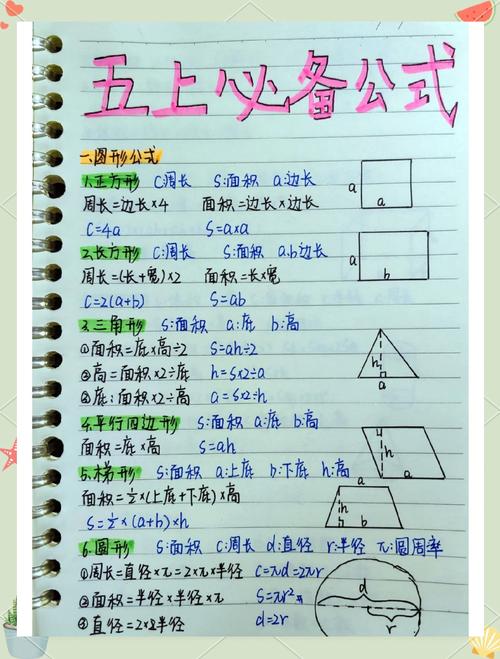 五上必备公式
一.图形公式
1.正方形 C:周长 S:面积 a:边长
周长=边长×4 面积=边长×边长
C=4a S=a×a
a
a
2.长方形 C:周长 S:面积 a.b边长
周长=(长+宽)×2 面积=长×宽
C=2(a+b) S=ab
a
b
3.三角形 S:面积 a:底 b:高
①面积=底×高÷2 S=ah÷2
②高=面积×2÷底 h=S×2÷a
③底:面积×2÷高 a=S×2÷h
h
a
4.平行四边形 S:面积 a:底 b:高
面积=底×高 S=ah
h
a
5.梯形 S:面积 a:上底 b:下底 h:高
面积=½×(上底+下底)×高
S=½×(a+b)×h
a
h
b
6.圆形 S:面积 C:周长 d:直径 r:半径 π:圆周率
①周长=直径×π=2×π×半径 C=πd=2πr
②面积=半径×半径×π S=πr²
③直径=2×半径 d=2r
d
r